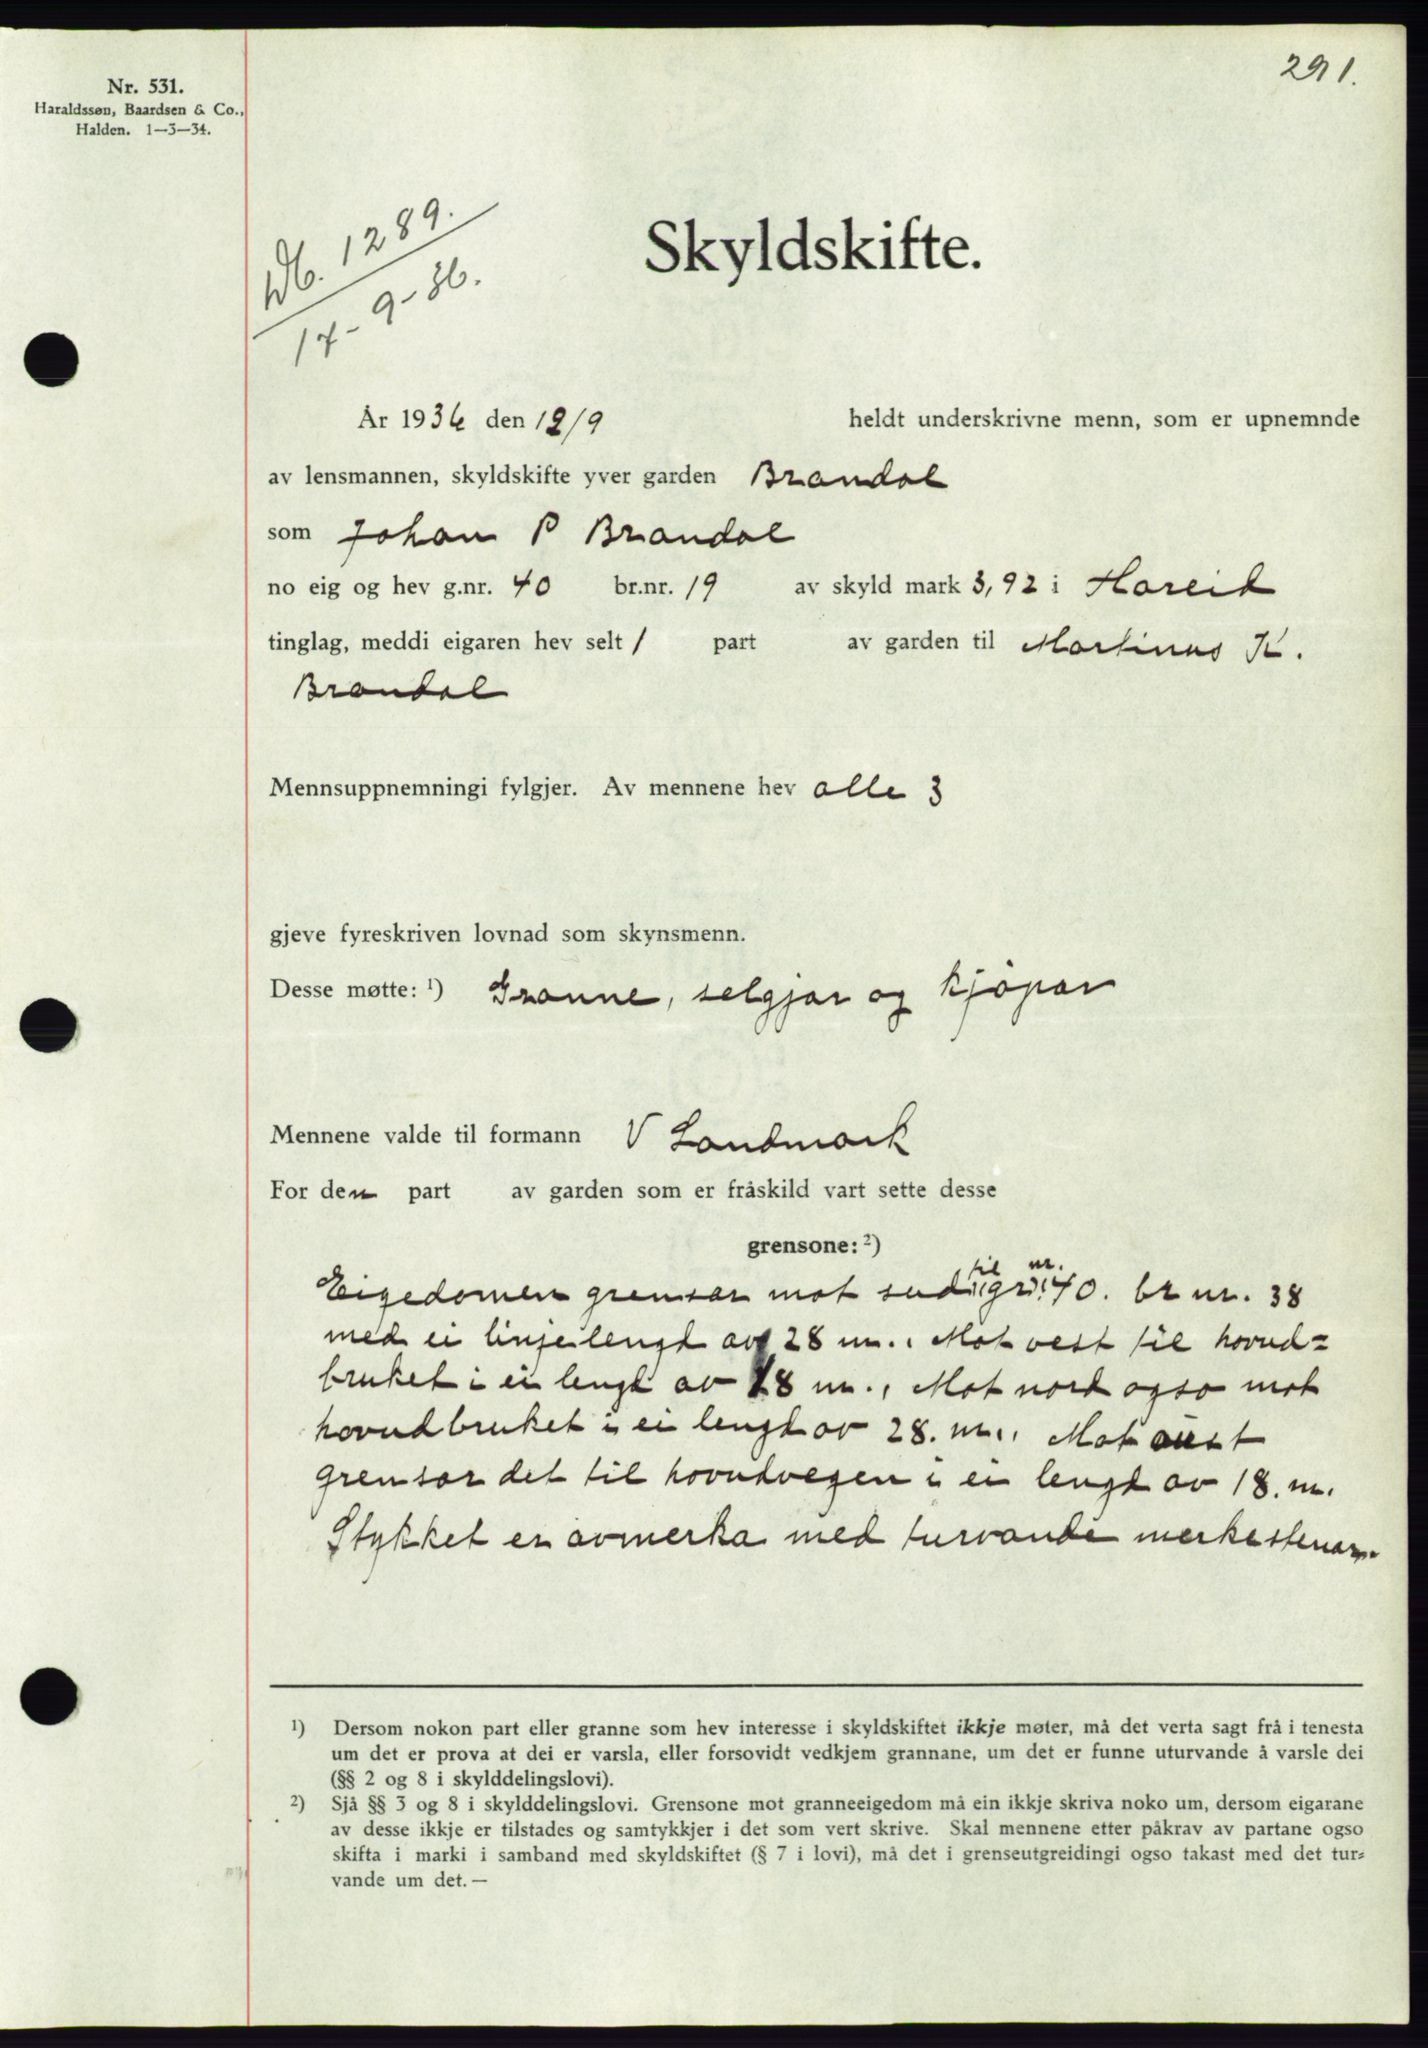 291.
Nr. 531.
Haraldssøn, Baardsen & Co.,
Halden. 1—3—34.
Db. 1289.
17-9-36.
Skyldskifte.
År 1936 den 12/9 heldt underskrivne menn, som er upnemnde
av lensmannen, skyldskifte yver garden Brandal
som Johan P Brandal
no eig og hev g.nr. 40 br.nr. 19 av skyld mark 3,92 i Hareid
tinglag, meddi eigaren hev selt 1 part av garden til Martinus K.
Brandal
Mennsuppnemningi fylgjer. Av mennene hev alle 3
gjeve fyreskriven lovnad som skynsmenn.
Desse møtte: ¹) Granne, selgjar og kjøpar
Mennene valde til formann V Landmark
For den part av garden som er fråskild vart sette desse
grensone: ²)
Eigedomen grensar mot sud til gr. nr. 40. br nr. 38
med ei linjelengd av 28 m.. Mot vest til hovud=
bruket i ei lengd av 18 m., Mot nord ogso mot
hovudbruket i ei lengd av 28. m.. Mot aust
grensar det til hovudvegen i ei lengd av 18. m.
Stykket er avmerka med turvande merkestenar.
¹) Dersom nokon part eller granne som hev interesse i skyldskiftet ikkje møter, må det verta sagt frå i tenesta
um det er prova at dei er varsla, eller forsovidt vedkjem grannane, um det er funne uturvande å varsle dei
(§§ 2 og 8 i skylddelingslovi).
²) Sjå §§ 3 og 8 i skylddelingslovi. Grensone mot granneeigedom må ein ikkje skriva noko um, dersom eigarane
av desse ikkje er tilstades og samtykkjer i det som vert skrive. Skal mennene etter påkrav av partane ogso
skifta i marki i samband med skyldskiftet (§ 7 i lovi), må det i grenseutgreidingi ogso takast med det tur=
vande um det. —